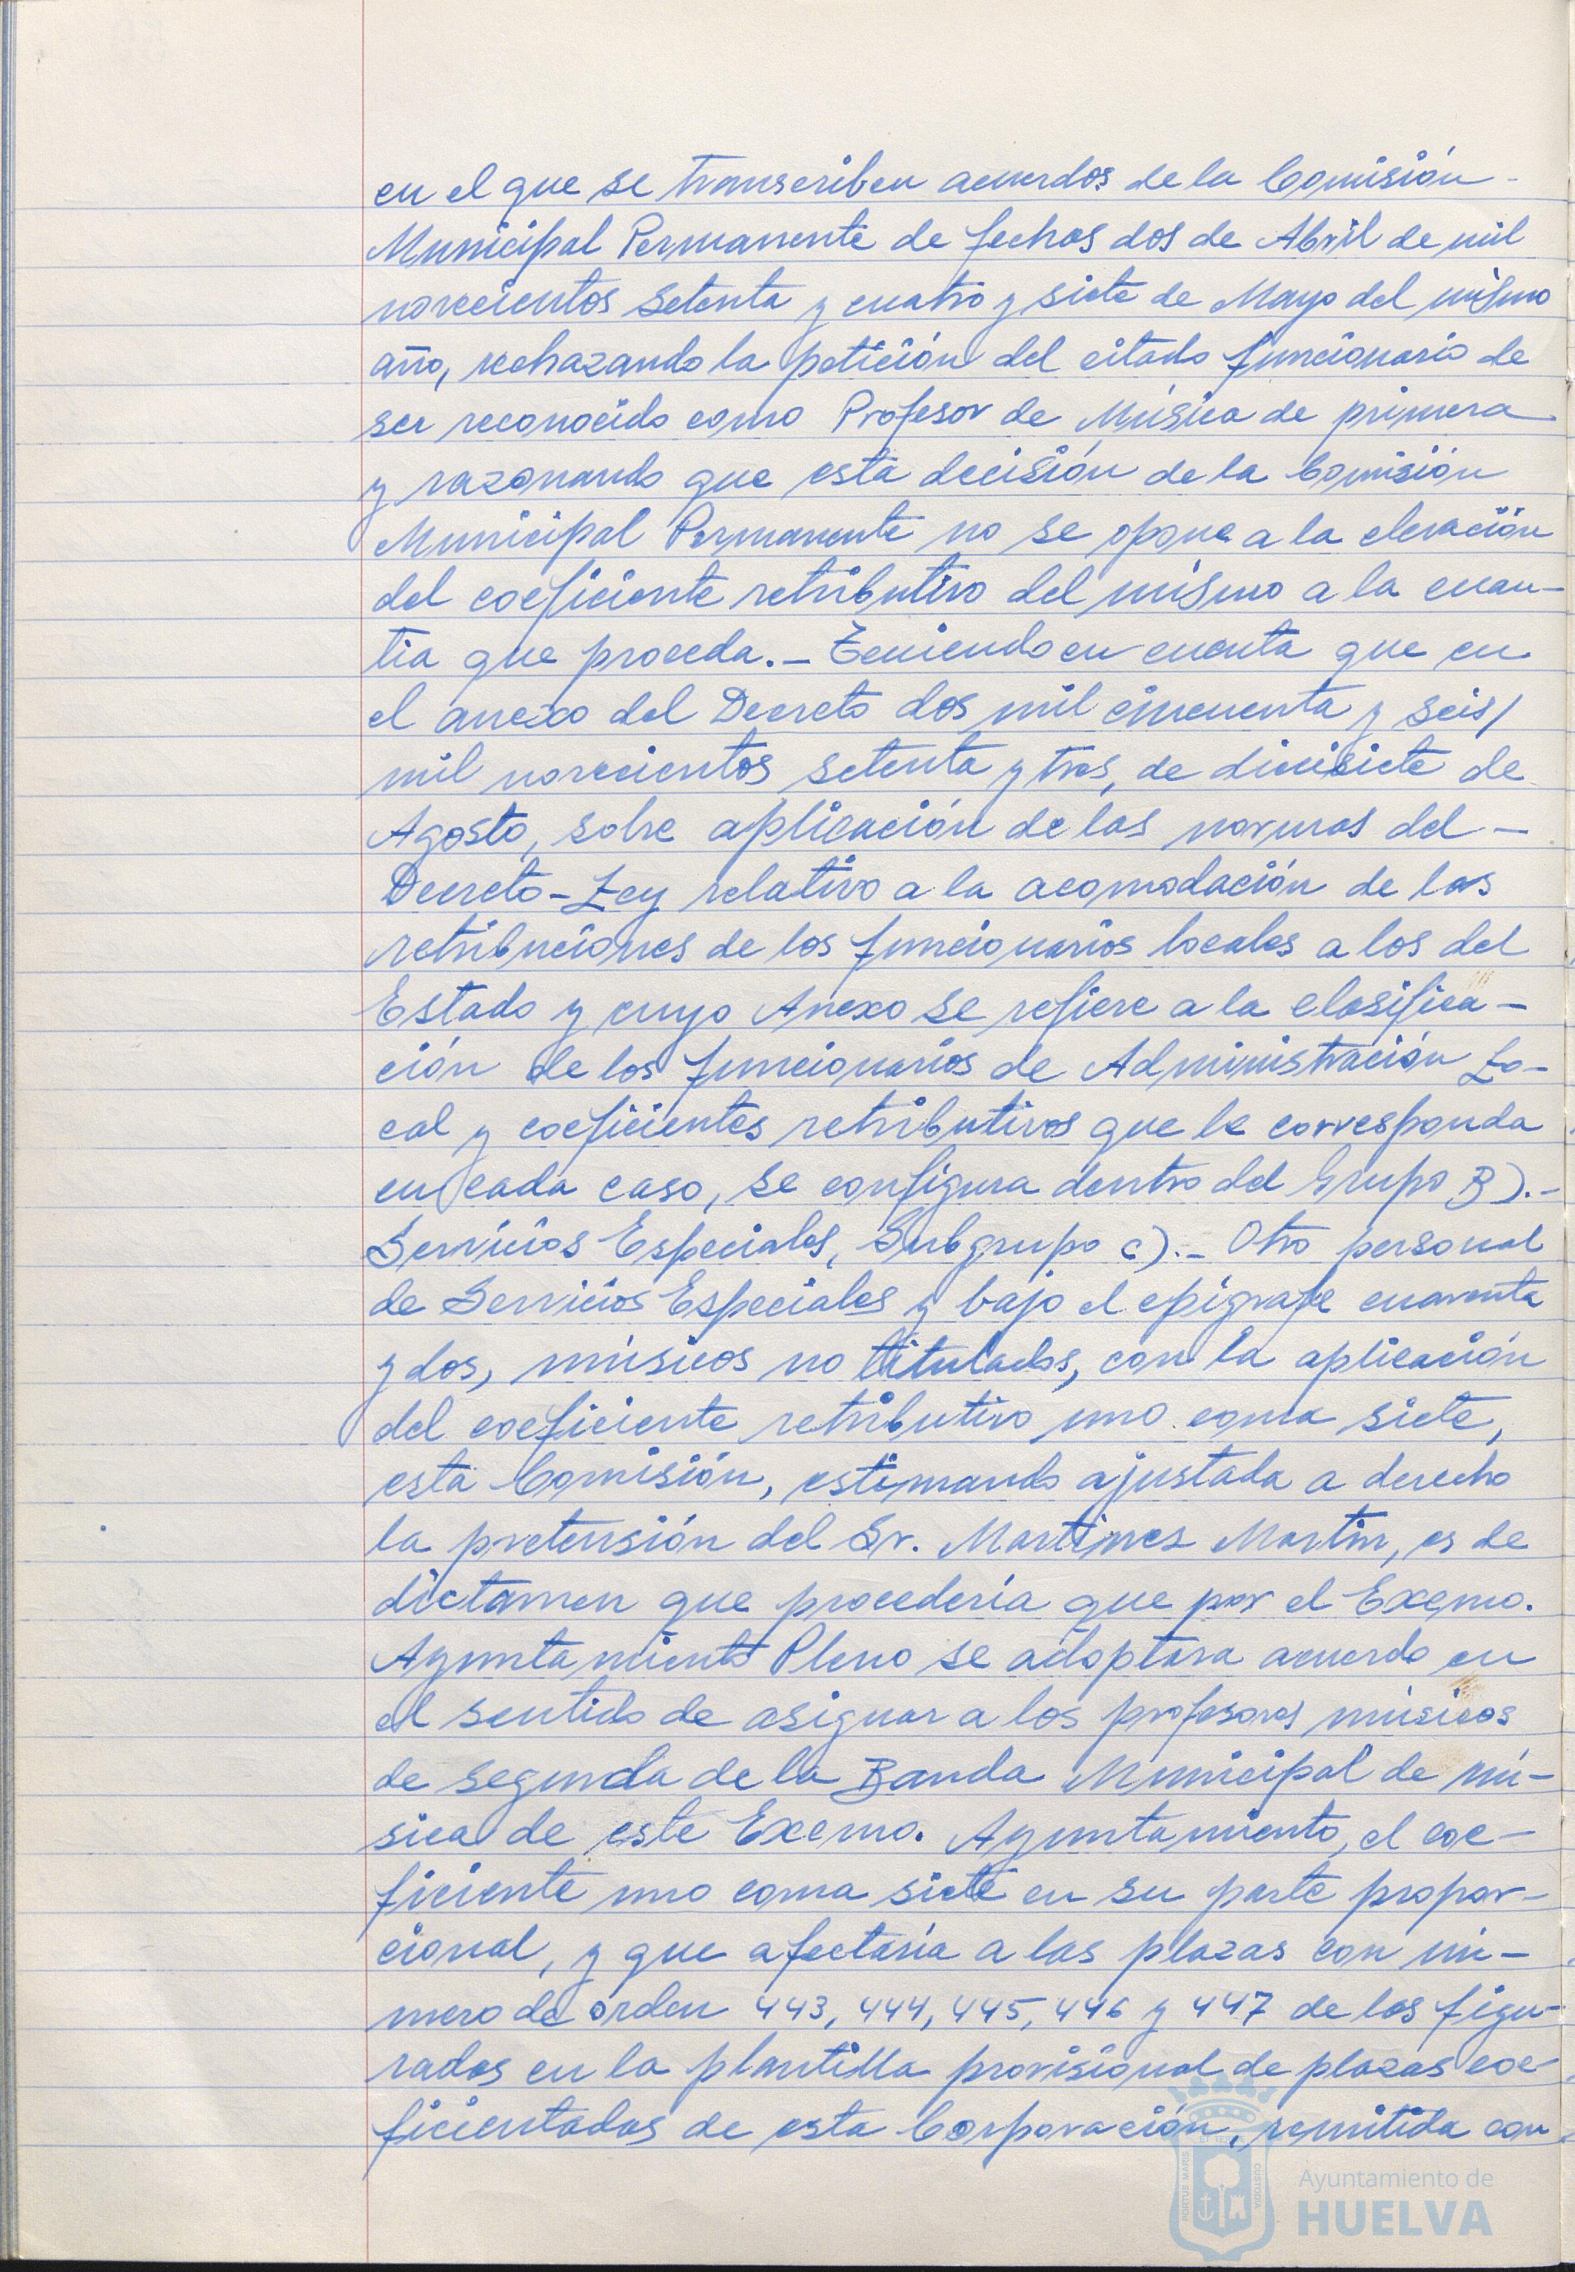 en el que se transcriben acuerdos de la Comisión -
Municipal Permanente de fechas dos de Abril de mil
novecientos setenta y cuatro y siete de Mayo del mismo
año, rechazando la petición del citado funcionario de
ser reconocido como Profesor de Música de primera
y razonando que esta decisión de la Comisión
Municipal Permanente no se opone a la elevación
del coeficiente retributivo del mismo a la cuan-
tia que proceda.- Teniendo en cuenta que en
el anexo del Decreto dos mil cincuenta y seis/
mil novecientos setenta y tres, de diecisiete de
Agosto, sobre aplicación de las normas del -
Decreto-Ley relativo a la acomodación de las
retribuciones de los funcionarios locales a los del
Estado y cuyo Anexo se refiere a la clasifica-
ción de los funcionarios de Administración Lo-
cal y coeficientes retributivos que le corresponda
en cada caso, se configura dentro del Grupo B).-
Servicios Especiales, Subgrupo c).- Otro personal
de Servicios Especiales y bajo el epígrafe cuarenta
y dos, músicos no titulados, con la aplicación
del coeficiente retributivo uno coma siete,
esta Comisión, estimando ajustada a derecho
la pretensión del Sr. Martinez Martin, es de
dictamen que procedería que por el Excmo.
Ayuntamiento Pleno se adoptara acuerdo en
el sentido de asignar a los profesores músicos
de segunda de la Banda Municipal de mú-
sica de este Excmo. Ayuntamiento, el coe-
ficiente uno coma siete en su parte propor-
cional, y que afectaría a las plazas con nú-
mero de orden 443, 444, 445, 446 y 447 de las figu-
radas en la plantilla provisional de plazas coe-
ficientadas de esta Corporación, remitida con
PORTUS MARIS CUSTODIA
Ayuntamiento de
HUELVA